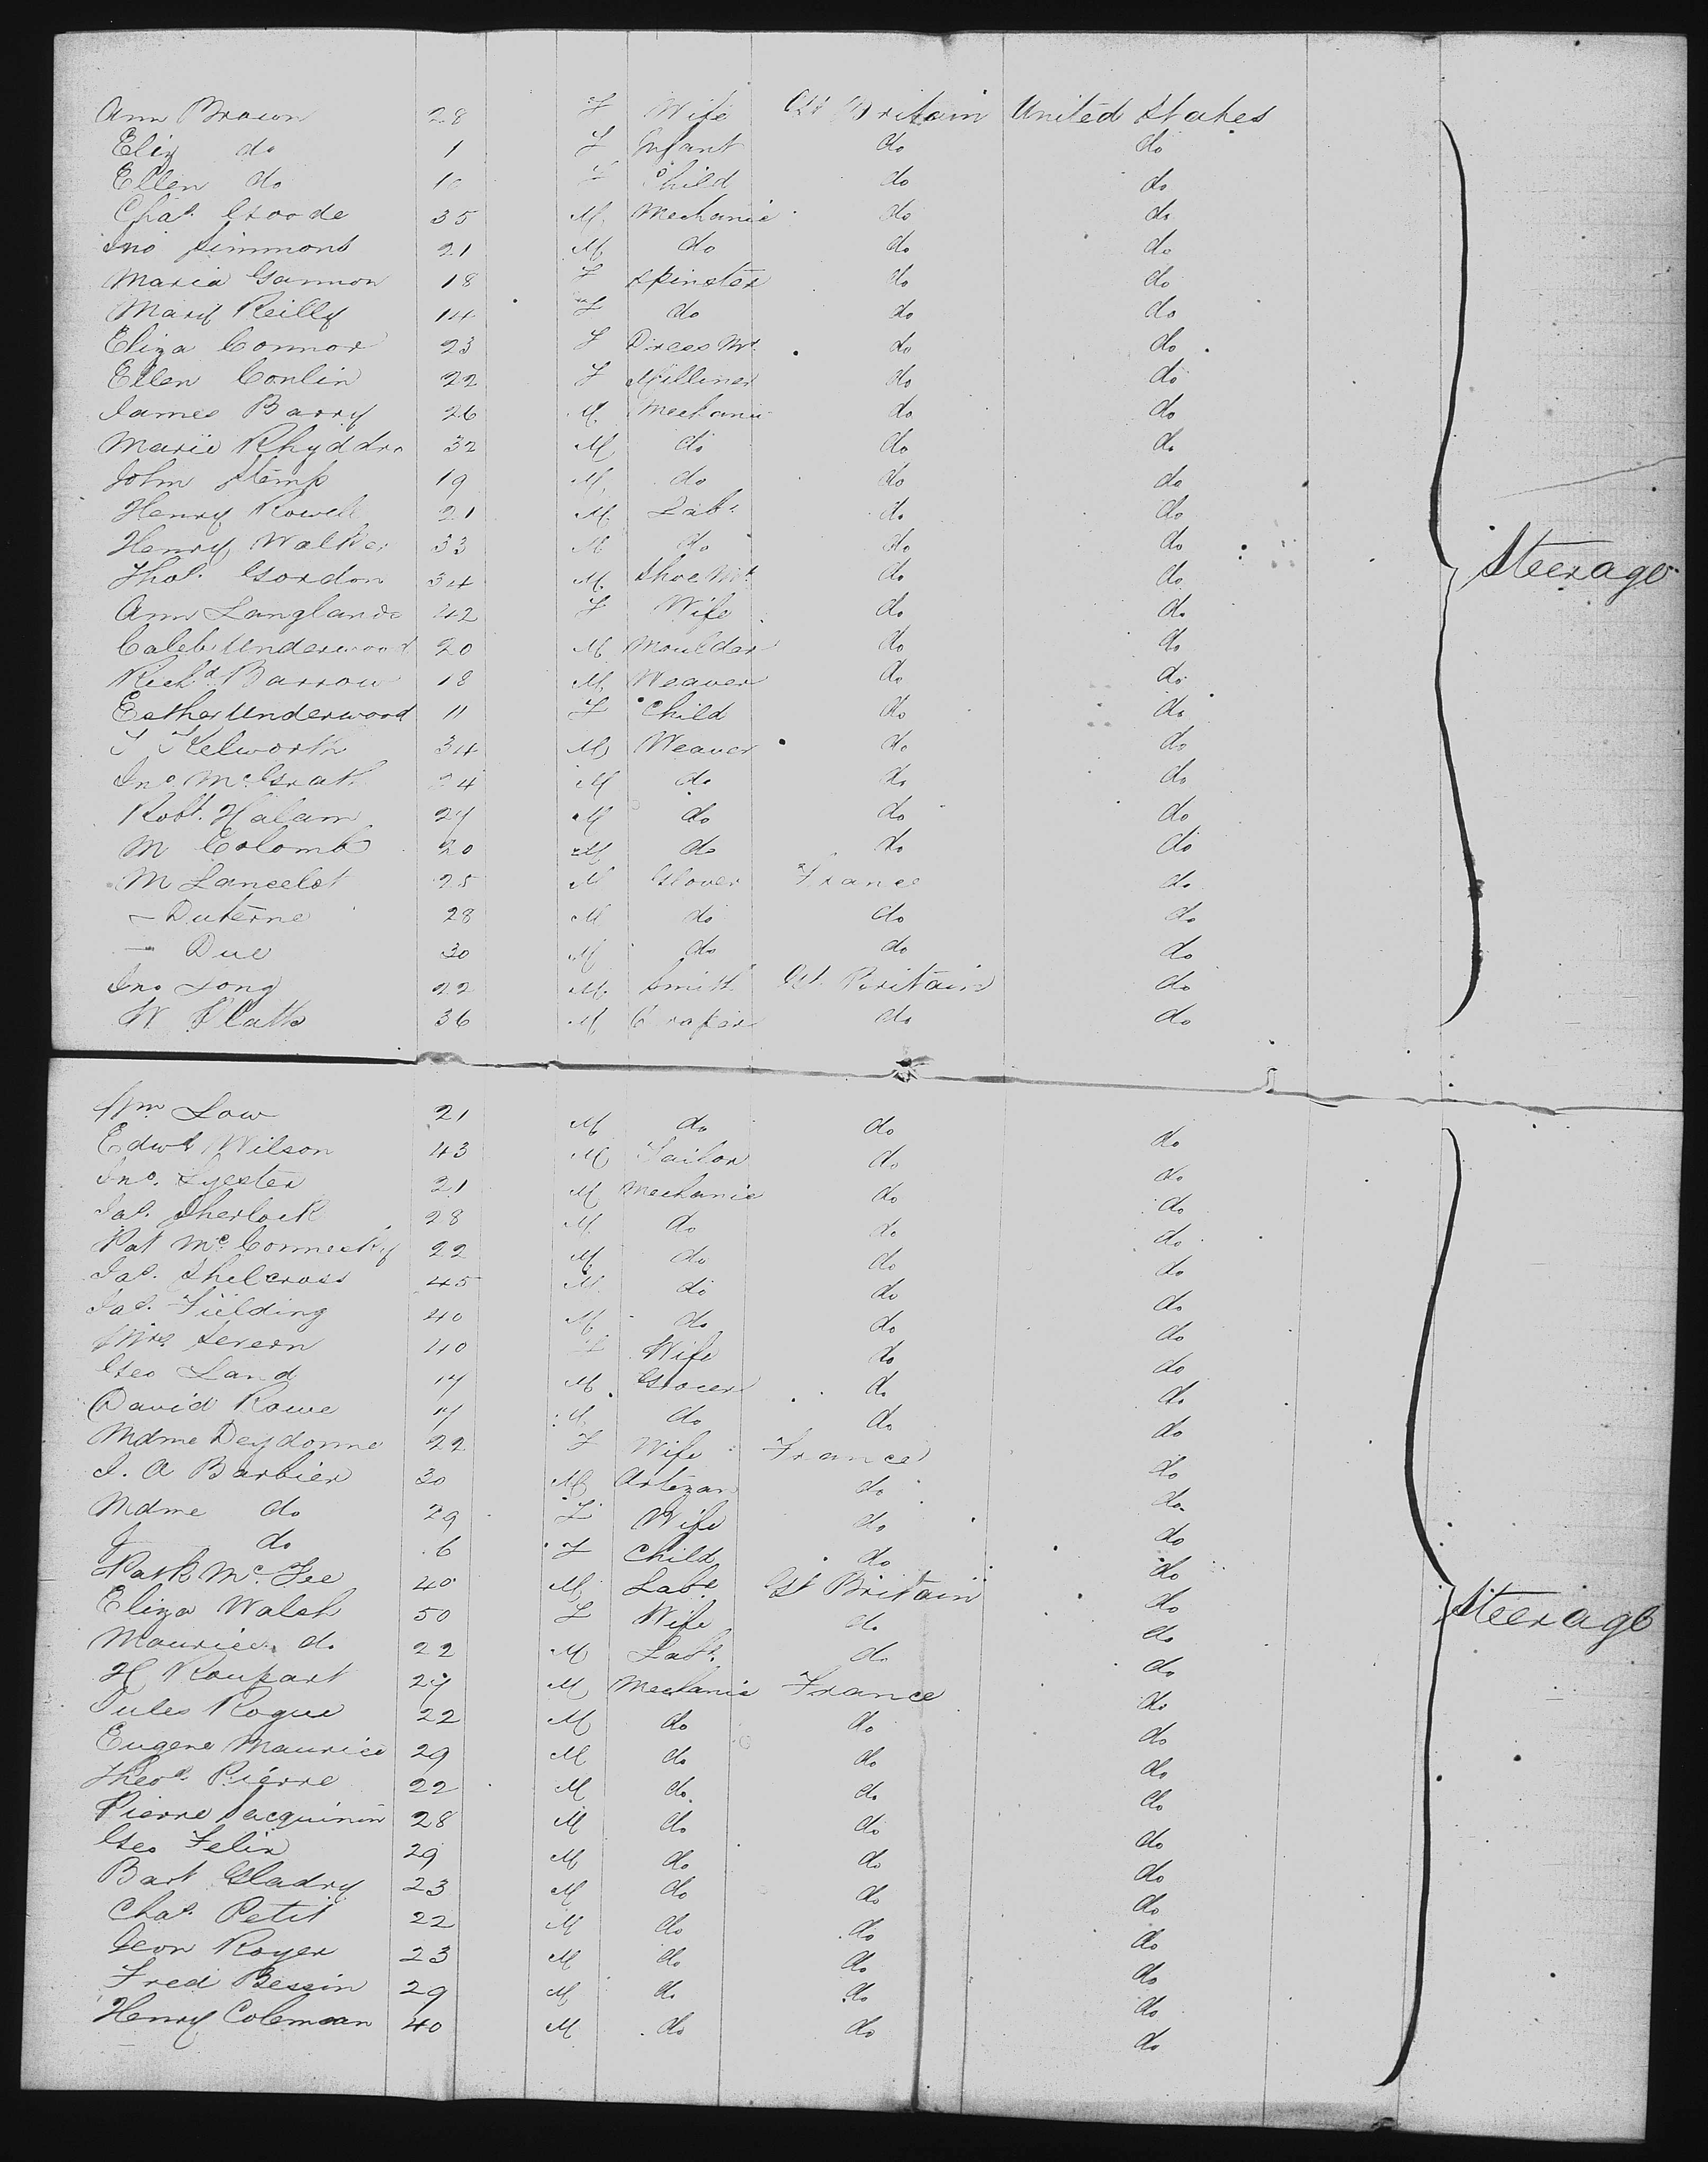 Ann Brown 28 F Wife Gt Britain United States
Eliz do 1 F Infant do do
Ellen do 10 F Child do do
Chas. Goode 35 M Mechanic do do
Jno Simmons 21 M do do do
Maria Gannon 18 F Spinster do do
Mary Reilly 14 F do do do
Eliza Connor 23 F Dress Mr. do do
Ellen Conlin 22 F Milliner do do
James Barry 26 M Mechanic do do
Marie 32 M do do do
John Stemp 19 M do do do
Henry Rowell 21 M Labr. do do
Henry Walker 33 M do do do
Thos. Gordon 34 M Shoe Mr. do do Steerage
Ann Langlands 42 F Wife do do
Caleb Underwood 20 M Moulder do do
Richd. Barrow 18 M Weaver do do
Esther Underwood 11 F Child do do
T Kelworth 34 M Weaver do do
Jno. McGrath 24 M do do do
Robt. Halam 27 M do do do
M Colomb 20 M do do do
M Lancelot 25 M Glover France do
— Duterne 28 M do do do
— Due 30 M do do do
Jno Long 22 M Smith Gt. Britain do
W Platts 36 M Draper do do
Wm Low 21 M do do do
Edwd Wilson 43 M Tailor do do
Jno. Lyester 21 M Mechanic do do
Jas. Sherlock 28 M do do do
Pat Mc 22 M do do do
Jas. Shelcross 45 M do do do
Jas. Fielding 40 M do do do
Mrs. Severn 40 F Wife do do
Geo Land 17 M Grocer do do
David Rowe 17 M do do do
Mdme Deydonne 22 F Wife France do
J. A Barbier 30 M Artizan do do
Mdme do 29 F Wife do do
J do 6 F Child do do
Patk Mc. Fee 40 M Labr. Gt Britain do
Eliza Walsh 50 F Wife do do Steerage
Maurice do 22 M Labr. do do
H Roupart 27 M Mechanic France do
Jules Rogue 22 M do do do
Eugene Maurice 29 M do do do
Theod. Pierre 22 M do do do
Pierre Jacquinin 28 M do do do
Geo Felix 29 M do do do
Bart Gladry 23 M do do do
Chas. Petit 22 M do do do
Leon Royer 23 M do do do
Fred Bessin 29 M do do do
Henry Coleman 40 M do do do